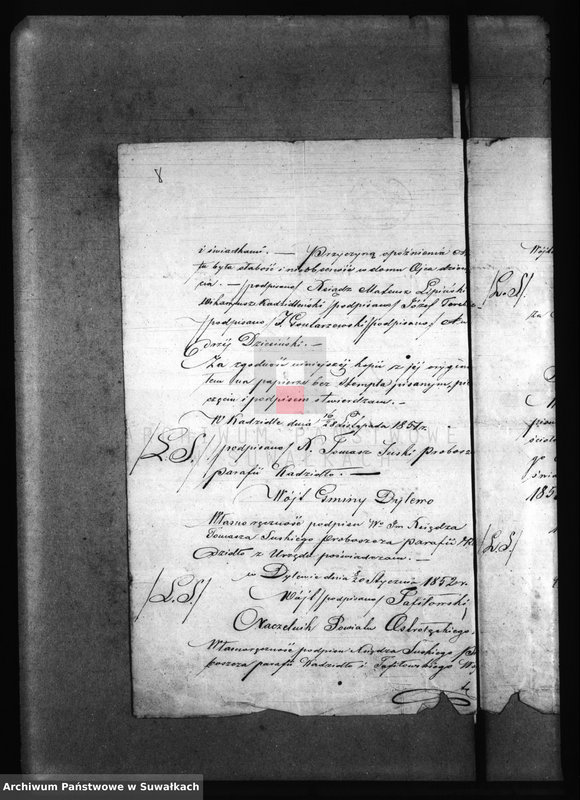 8
i świadkami. — Przyczyną opóźnienia
ta była słabość i nieobecność w domu Ojca dzien
cia. — /podpisano/ Ksiądz Mateusz Lipiński
Wikaryusz Kadzidłański /podpisano/ Józef
/podpisano/ J. Gonlarzewski /podpisano/ An
drzéj Dzieciński. —
Za zgodność niniejszéj kopii z jéj orygina
łem na papierze bez stempla pisanym, pie
częcią i podpisem stwierdzam. —
W Kadzidle dnia 16/28 Listopada 1851 r.
/L.S./ /podpisano/ X. Tomasz Suski Probosz
parafii Kadzidło. —
Wójt Gminy Dylewo
Własnoręczność podpisu Wo Im Księdza
Tomasza Suskiego Proboszcza parafii Ka
dzidło z Urzędu poświadczam. —
w Dylewie dnia Stycznia 1852 r.
/L.S./ Wójt /podpisano/ Tafiłowski
Naczelnik Powiatu Ostrołęckiego.
Własnoręczność podpisu Księdza Suskiego Pro
boszcza parafii Kadzidło i Tafiłowskiego Wój
ta
Wójt
/L.S./
za
185
/L.S./
Archiwum Państwowe w Suwałkach